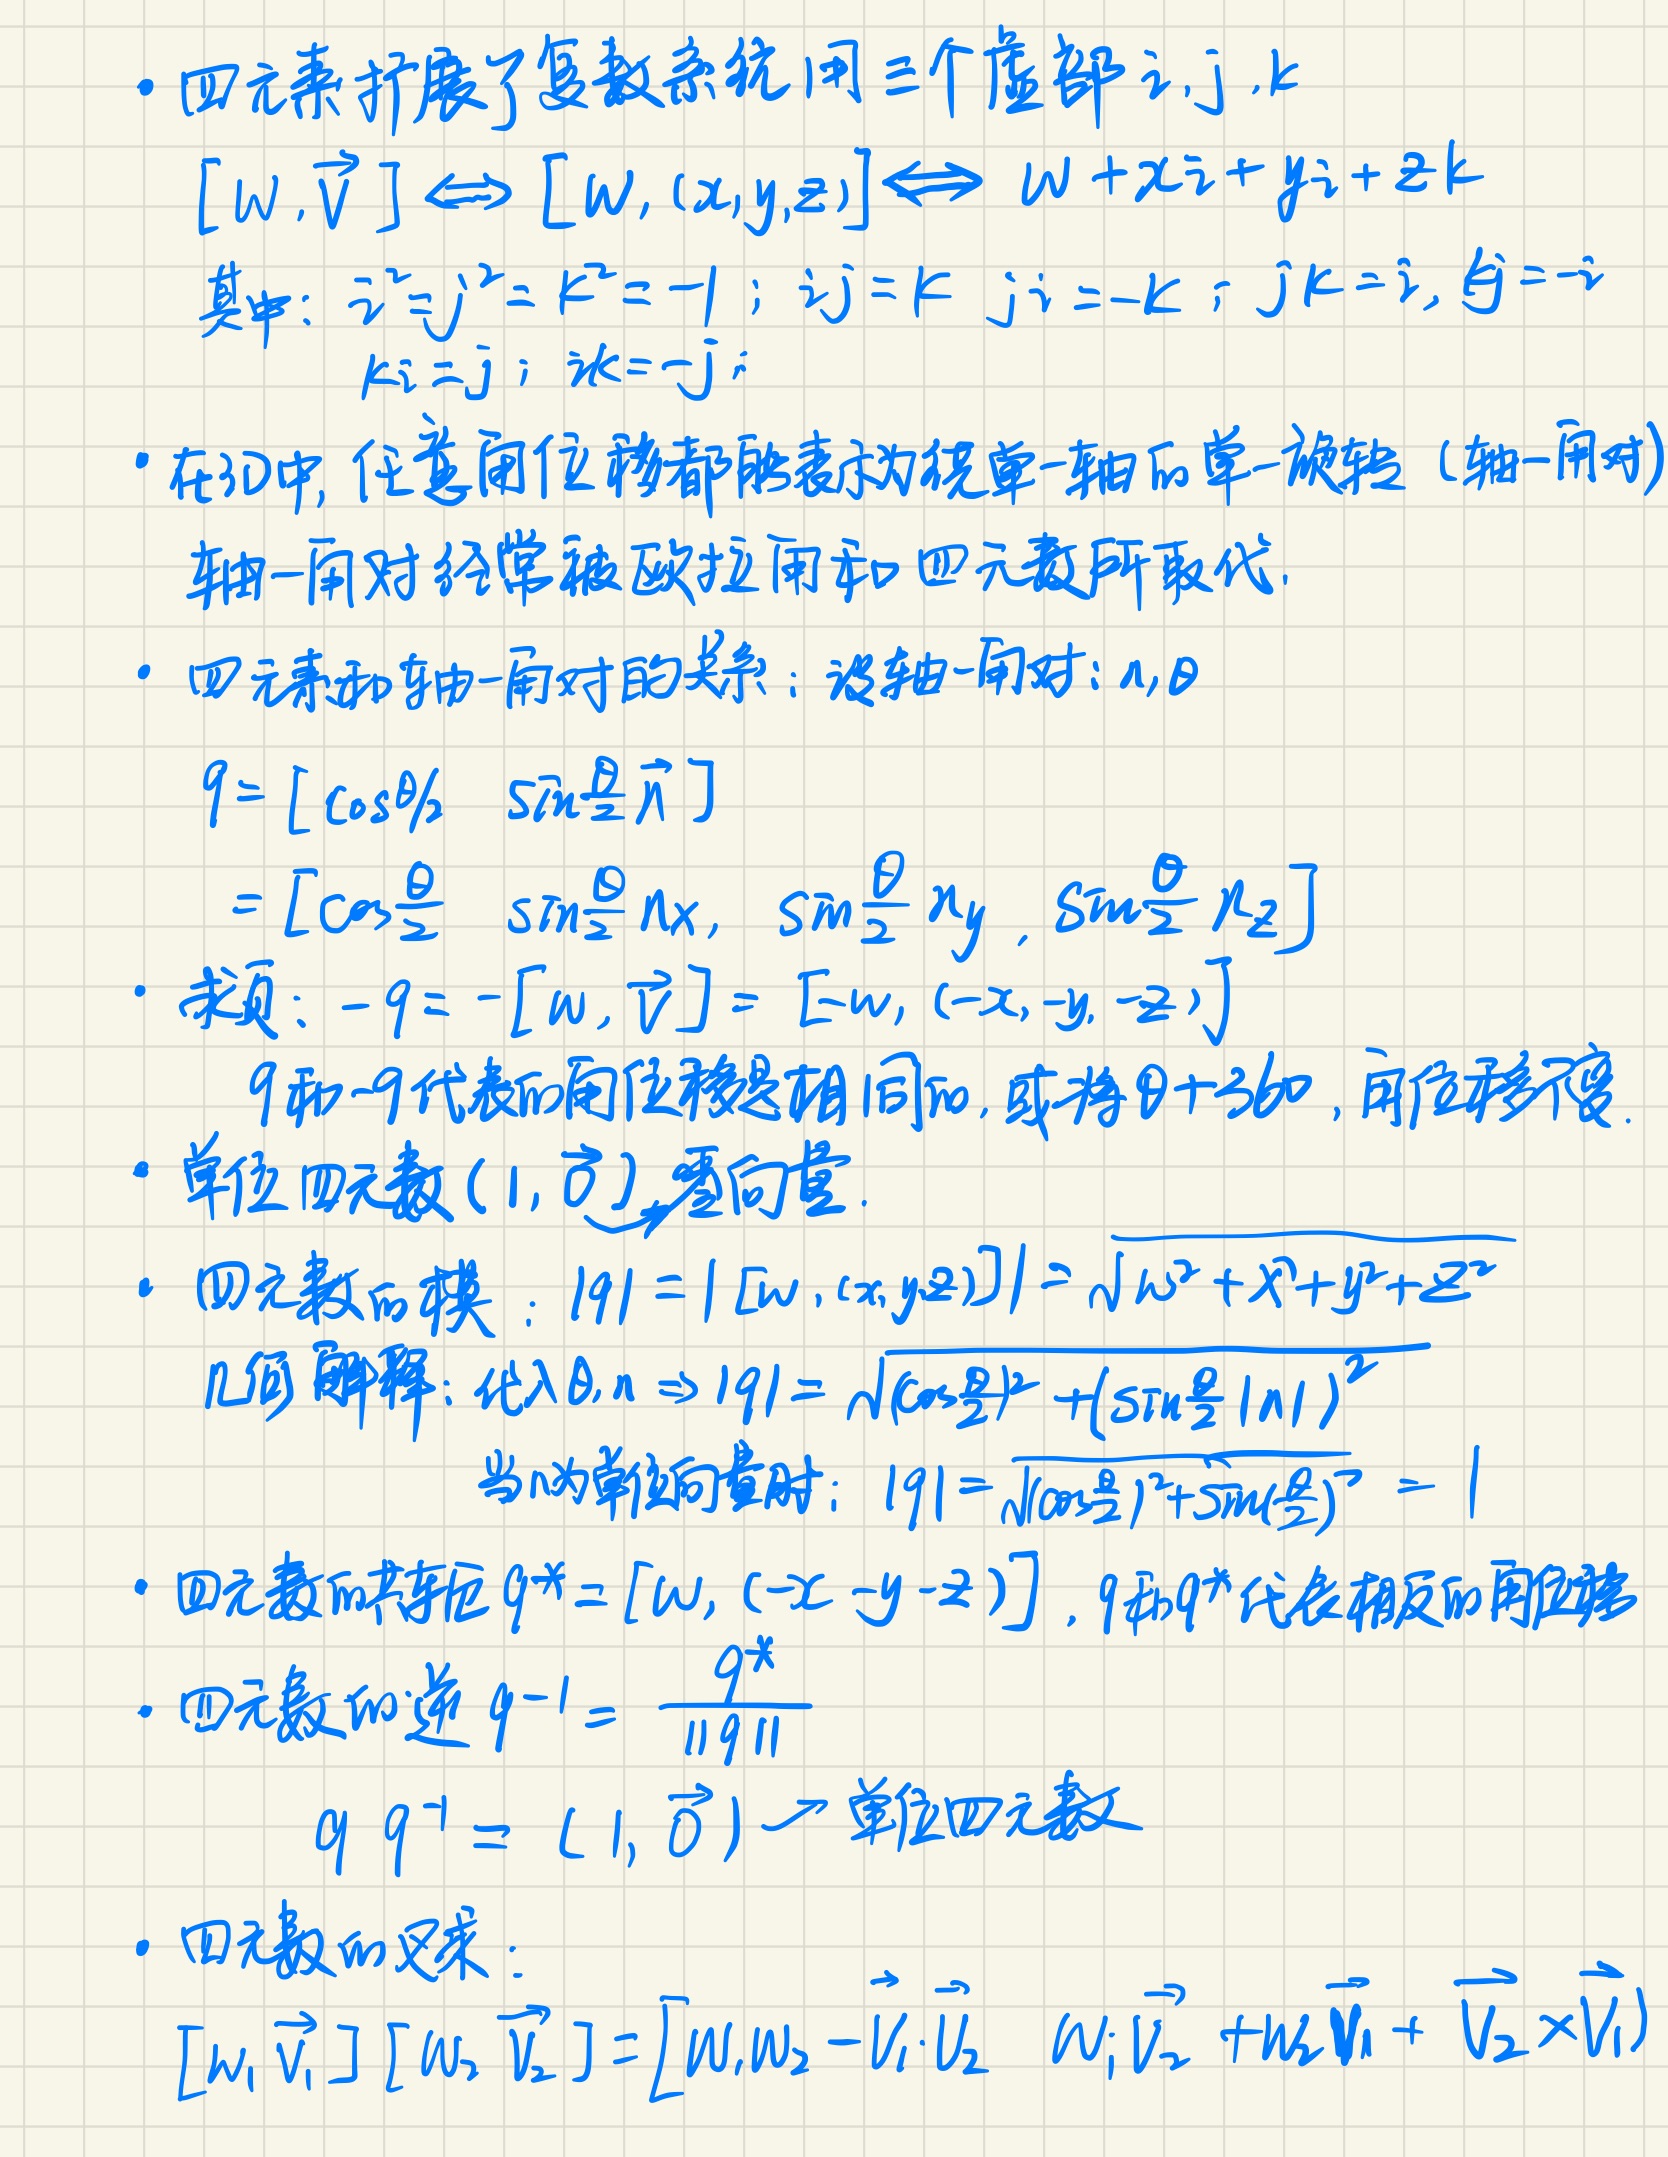 · 四元素扩展了复数系统用三个虚部 i, j, k
[w, v⃗] ⟺ [w, (x, y, z)] ⟺ w + xi + yi + zk
其中: i² = j² = k² = -1; ij = k ji = -k; jk = i, kj = -i
ki = j; ik = -j;
· 在3D中, 任意角位移都能表示为绕单一轴的单一旋转 (轴-角对)
轴-角对经常被欧拉角和四元数所取代.
· 四元素和轴-角对的关系: 设轴-角对: n, θ
q = [cosθ/2 sin θ/2 n⃗]
= [cos θ/2 sin θ/2 nx, sin θ/2 ny, sin θ/2 nz]
· 求负: -q = -[w, v⃗] = [-w, (-x, -y, -z)]
q和-q代表的角位移是相同的, 或将θ+360, 角位移不变.
· 单位四元数 (1, 0⃗) → 零向量.
· 四元数的模: |q| = |[w, (x, y, z)]| = √(w² + x² + y² + z²)
几何解释: 代入θ, n ⇒ |q| = √((cos θ/2)² + (sin θ/2 |n|)²)
当n为单位向量时: |q| = √((cos θ/2)² + sin(θ/2)²) = 1
· 四元数的共轭 q* = [w, (-x -y -z)], q和q*代表相反的角位移
· 四元数的逆 q⁻¹ = q* / ||q||
q q⁻¹ = (1, 0⃗) → 单位四元数
· 四元数的叉乘:
[w₁ v⃗₁] [w₂ v⃗₂] = [w₁w₂ - v⃗₁·v⃗₂ w₁v⃗₂ + w₂v⃗₁ + v⃗₂ × v⃗₁)